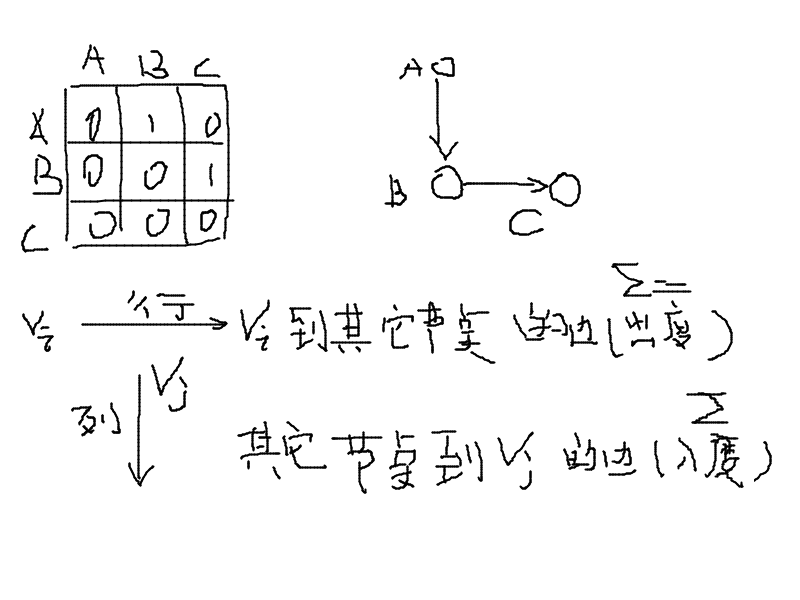 A B C
A 0 1 0
B 0 0 1
C 0 0 0
A
B
C
Σ=
Vi 行 Vi 到其它节点的边(出度)
列 Vj
Σ
其它节点到 Vj 的边(入度)